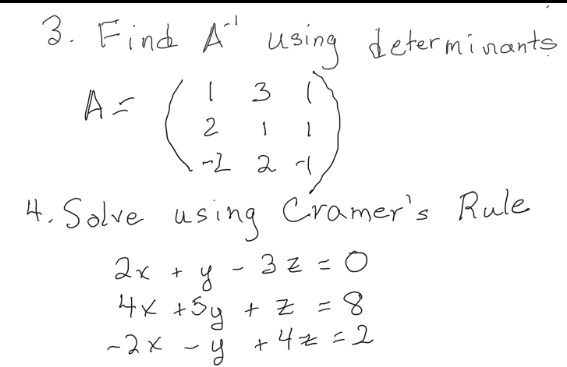 3. Find A⁻¹ using determinants
A = ( 1 3 1
2 1 1
-2 2 -1 )
4. Solve using Cramer's Rule
2x + y - 3z = 0
4x + 5y + z = 8
-2x - y + 4z = 2